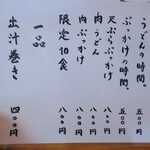 うどんの時間。 五〇〇円
ぶっかけの時間。 五〇〇円
天ぷらぶっかけ 八〇〇円
肉うどん 八〇〇円
肉ぶっかけ 八〇〇円
限定10食
一品
出汁巻き 四〇〇円